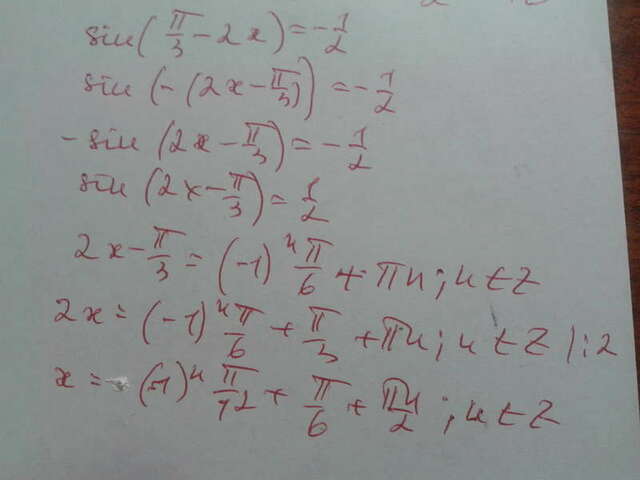 sin(π/3 - 2x) = -1/2
sin(-(2x - π/3)) = -1/2
-sin(2x - π/3) = -1/2
sin(2x - π/3) = 1/2
2x - π/3 = (-1)ⁿ π/6 + πn; n∈Z
2x = (-1)ⁿ π/6 + π/3 + πn; n∈Z |:2
x = (-1)ⁿ π/12 + π/6 + πn/2; n∈Z